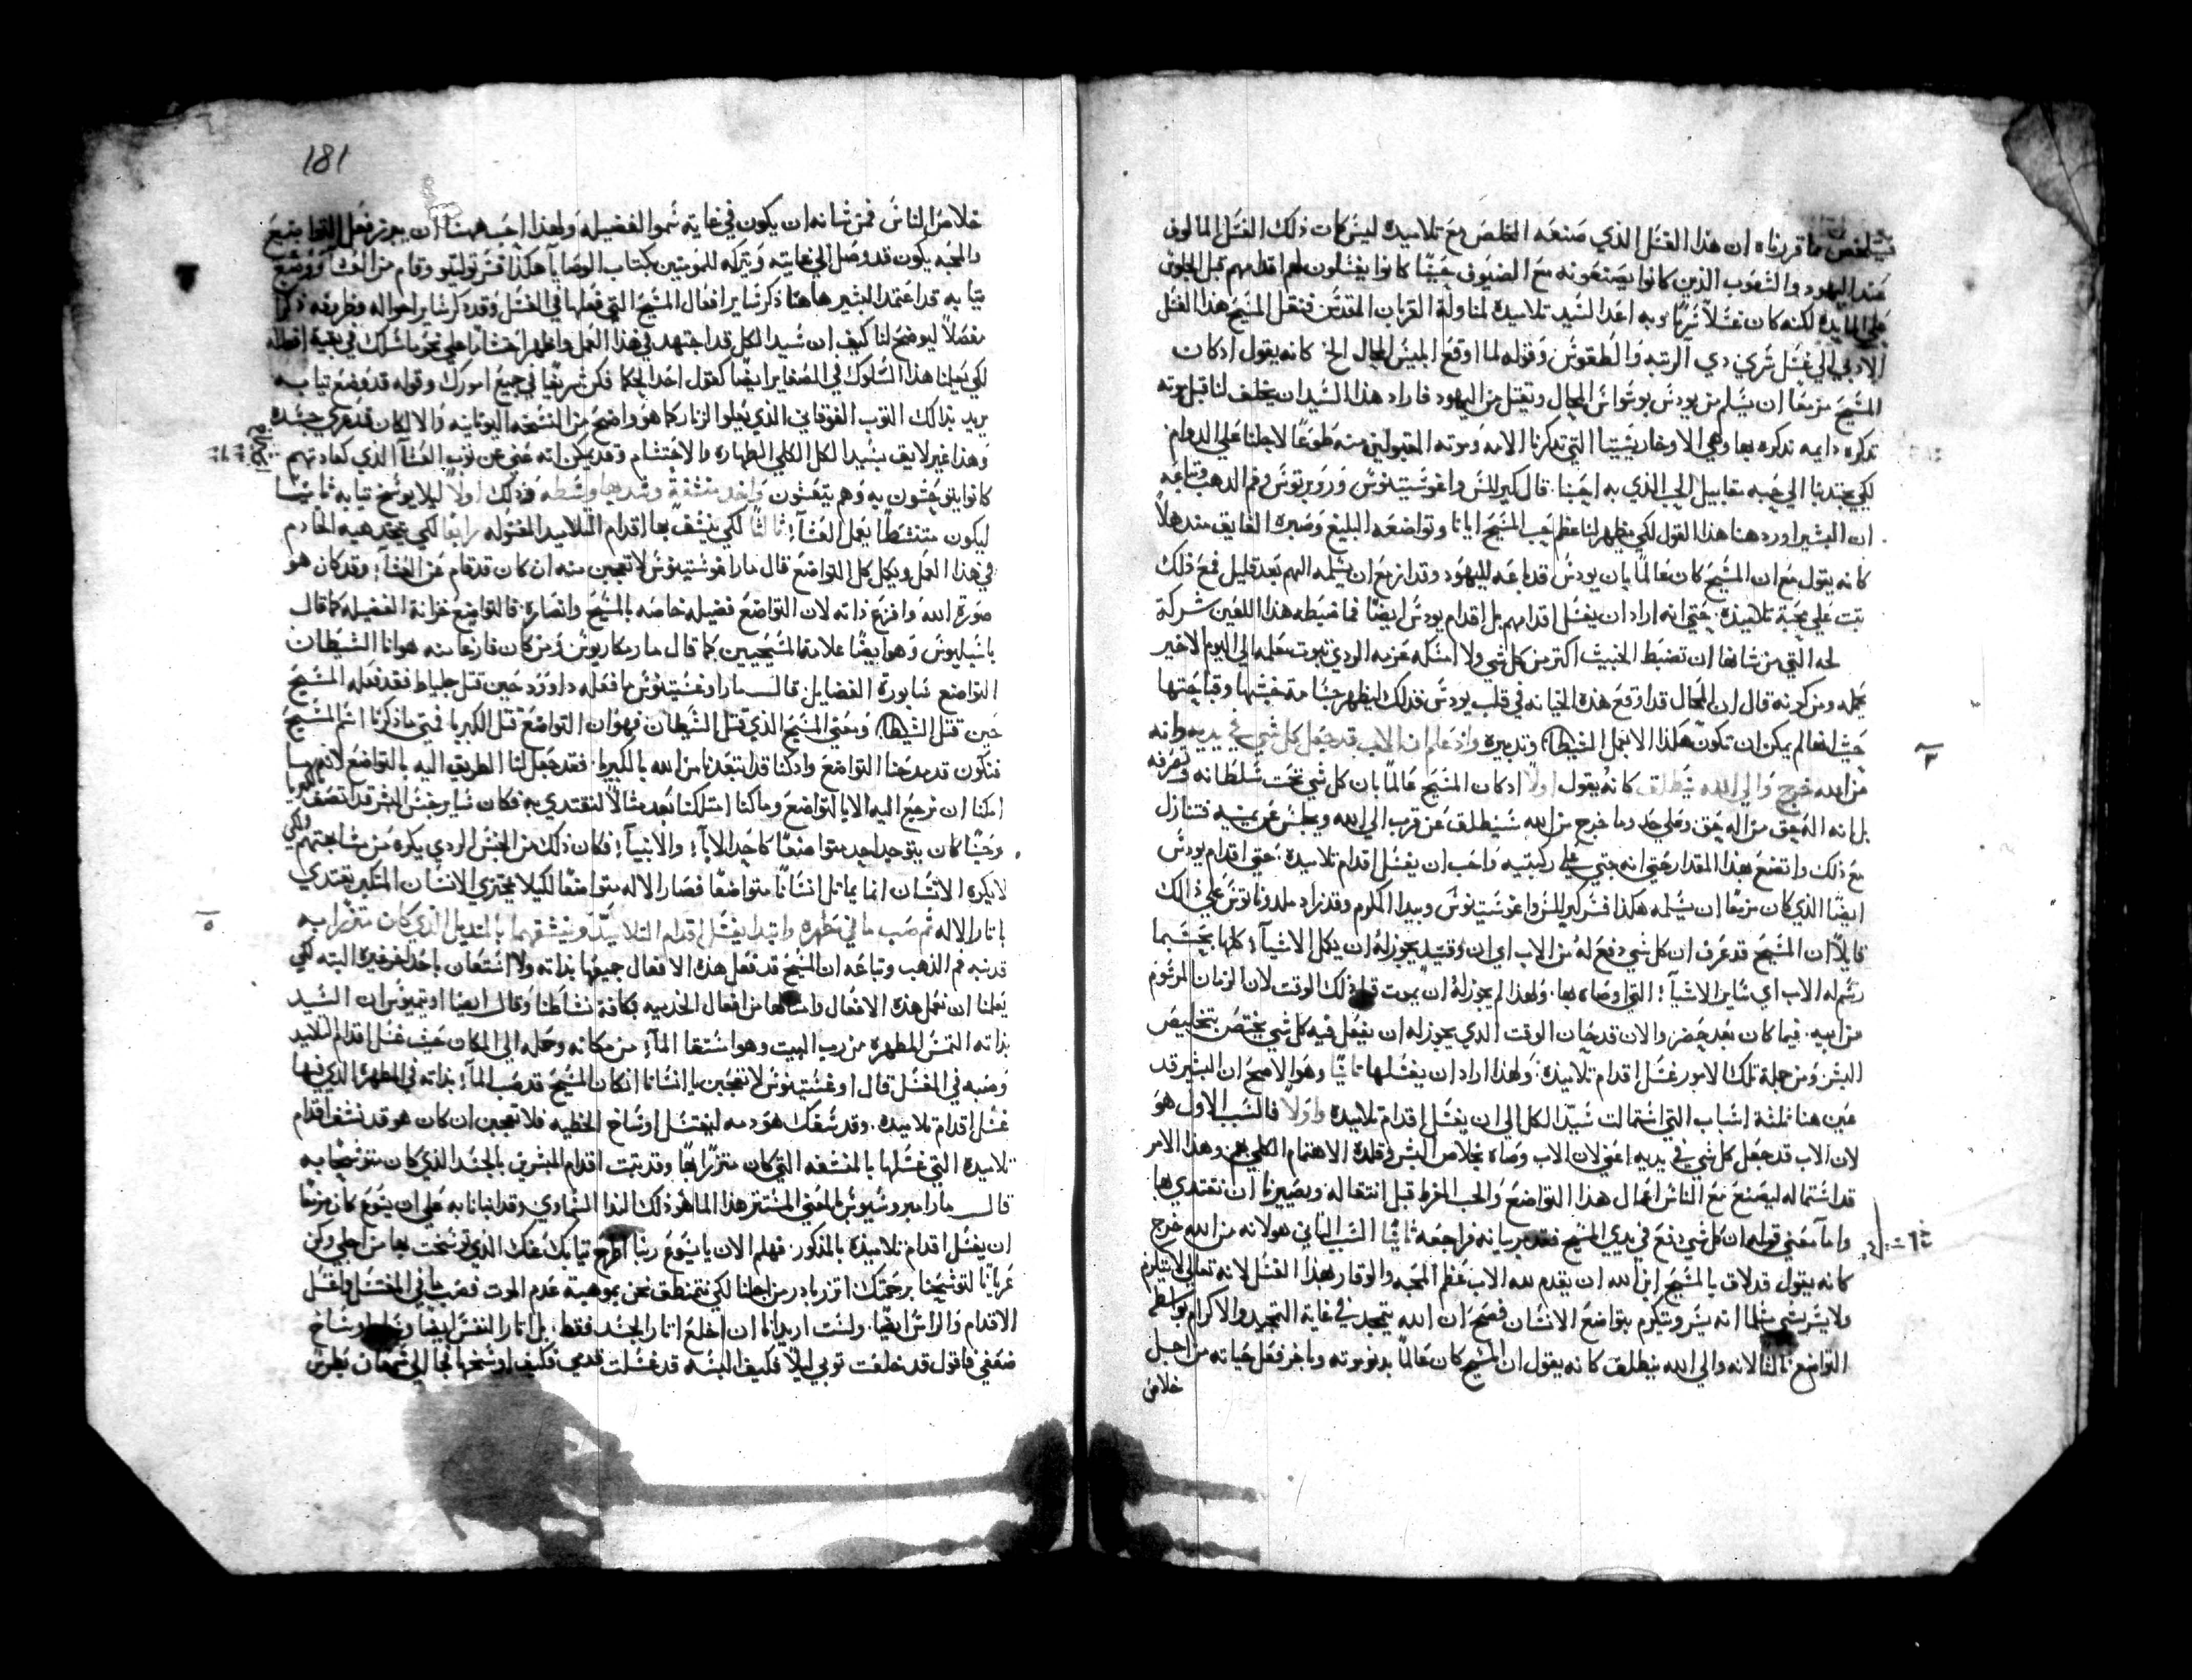 فيتلخص مما قررناه ان هذا الغسل الذي صنعه المخلص مع تلاميذه ليس كان ذلك الغسل المالوف
عند اليهود والشعوب الذين كانوا يصنعونه مع الضيوف حيثما كانوا يغسلون لهم اقدامهم قبل الجلوس
علي المايده لكنه كان غسلاً سرياً وبه اعد السيد تلاميذه لمناولة القربان المقدس فنقل المسيح هذا الغسل
الادبي الي غسل سري ذي الرتبه والطقوس وقوله لما اوقع ابليس المحال الخ كانه يقول اذ كان
المسيح مزمعاً ان يسلم من يودس بوسواس المحال ويقتل من اليهود فاراد هذا السيد ان يخلف لنا قبل موته
تذكره دايمه نذكره بها وهي الاوخاريستيا التي تذكرنا الامه وموته المقبولين منه طوعاً لاجلنا علي الدوام
لكي يجتذبنا الي حبه مقابيل الحب الذي به احبنا. قال كيرللس واغوستينوس وروبرتوس وفم الذهب وتباعه
ان البشير اورد هنا هذا القول لكي يظهر لنا عظم حب المسيح ايانا وتواضعه البليغ وصبره الفايق مندهلاً
كانه يقول مع ان المسيح كان عالماً بان يودس قد باعه لليهود وقد ازمع ان يسلمه اليهم بعد قليل فمع ذلك
ثبت علي محبة تلاميذه. حتي انه اراد ان يغسل اقدامهم بل اقدام يودس ايضاً فما ضبطه هذا اللعين شركة
لحه التي من شانها ان تضبط الخبيث اكثر من كل شي ولا امسكه عزمه الردي بثبوت معلمه الي اليوم الاخير
بحبه ومن كونه قال ان المحال قد اوقع هذه الخيانه في قلب يودس فذلك ليظهر جسامة خبثها وقباحتها
حيث انها لم يمكن ان تكون هكذا الا بفعل الشيطان وتدبيره واذ علم ان الاب قد جعل كل شي في يديه وانه
من الله خرج والي الله ينطلق كانه يقول اولاً اذ كان المسيح عالماً بان كل شي تحت سلطانه وتصرفه
بل انه اله حق من اله حق وعلي حد وما خرج من الله سينطلق عن قرب الي الله ويجلس عن يمينه فتنازل
مع ذلك واتضع بهذا المقدار حتي انه جثي علي ركبتيه واحب ان يغسل اقدام تلاميذه. حتي اقدام يودس
ايضاً الذي كان مزمعاً ان يسلمه هكذا فسر كيرللس واغوستينوس وبيدا المكرم وقد زاد ملدوناتوس علي ذالك
قايلاً ان المسيح قد عرف ان كل شي دفع له من الاب اي ان وقتيذ يجوز له ان يكمل الاشيآ كلها بحسبما
رسم له الاب اي ساير الاشيآ التي اوصاه بها. ولهذا لم يجوز له ان يموت قبل ذلك الوقت لان الزمان المرسوم
من ابيه. فيما كان بعد حضر والان قد حان الوقت الذي يجوز له ان يفعل فيه كل شي يختص بتخليص
البشر ومن جملة تلك الامور غسل اقدام تلاميذه. ولهذا اراد ان يغسلها ثانياً وهو الاصح ان البشير قد
عين هنا ثلثة اسباب التي استمالت سيد الكل الي ان يغسل اقدام تلاميذه واولاً فالسبب الاول هو
لان الاب قد جعل كل شي في يديه اعني لان الاب وصاه بخلاص البشر وقلده الاهتمام الكلي بهم وهذا الامر
قد استماله ليصنع مع الناس اعمال هذا التواضع والحب المفرط قبل انتقاله ويصيرنا ان نقتدي بها
واما معني قوله ان كل شي دفع في يدي المسيح فقد مر بيانه فراجعه ثانياً السبب الثاني هو لانه من الله خرج
كانه يقول قد لاق بالمسيح ابن الله ان يقدم لله الاب عظم المحبه والوقار بهذا الغسل لانه تعالي لا يتكرم
ولا يسر بشي مثلما انه يسر ويتكرم بتواضع الانسان فصح ان الله يتمجد في غاية التمجيد والاكرام بواسطة
التواضع ثالثاً لانه والي الله ينطلق كانه يقول ان المسيح كان عالماً بدنو موته وباخر فعل حياته من اجل
خلاص
181
خلاص الناس فمن شانه ان يكون في غاية سمو الفضيله ولهذا احب ههنا ان يبرز فعل التواضع
والمحبه يكون قد وصل الي غايته ويتركه للمومنين بكتاب الوصايا هكذا فسر توليتو وقام من العشآ ووضع
ثيابه قد اعتمد البشير هاهنا ذكر ساير افعال المسيح التي فعلها في الغسل وقد ذكر ساير احواله وظروفه ذكراً
مفصلاً ليوضح لنا كيف ان سيد الكل قد اجتهد في هذا العمل واظهر احتشاماً علي نحو ما سلك في بقية افعاله
لكي يعلمنا هذا السلوك في الصغاير ايضاً كقول احد الحكما فكن شريفاً في جميع امورك وقوله قد وضع ثيابه
يريد بذالك الثوب الفوقاني الذي يعلوا الزنار كما هو واضح من النسخه اليونانيه والا لكان قد عري جسده
وهذا غير لايق بسيد الكل الكلي الطهاره والاحتشام وقد يمكن انه غني عن ثوب العشآ الذي كعادتهم
كانوا يتوحشون به وهم يتعشون واخد منشفة وشد بها وسطه فذلك اولاً ليلا يوسخ ثيابه ثانياً
ليكون متنشطاً بعمل العشآ؛ ثالثاً لكي ينشف بها اقدام التلاميد المغسوله رابعاً لكي يتخد هيه الخادم
في هذا العمل ويكمل كل التواضع قال مار اغوستينوس لا تعجبن منه ان كان قد قام عن العشآ؛ وقد كان هو
صورة الله وافرغ ذاته لان التواضع فضيله خاصه بالمسيح وانصاره. فالتواضع خزانة الفضيله كما قال
باسيليوس وهو ايضاً علامة المسيحيين كما قال مار مكاريوس ومن كان فارغاً منه هو انا الشيطان
التواضع نبا بورة الفضايل. قال مار اوغستينوس ما فعله داوود حين قتل جلياط فقد فعله المسيح
حين قتل الشيطان ومعني المسيح الذي قتل الشيطان فهو ان التواضع قتل الكبريا فمتي ما ذكرنا اسم المسيح
فنكون قد مدحنا التواضع واذ كنا قد ابتعدنا من الله بالكبريا. فقد جعل لنا الطريق اليه بالتواضع لانه ما
امكنا ان نرجع اليه الا بالتواضع وما كنا امتلكنا بعد مثالاً لنقتدي به فكان ساير جنس البشر قد اتصف بالكبريا
وحيثما كان يتوجد احد متواضعاً كاحد الابآ؛ والانبيآ؛ فكان ذلك من الجنس الردي يكره من مشابهتهم ولكي
لا يكره الانسان انما يماثل انساناً متواضعاً فصار الاله متواضعاً لكيلا يختزي الانسان المتكبر يقتدي
باثار الاله ثم صب ما في مطهره وابتدا يغسل اقدام التلاميذ وينشفهما بالمنديل الذي كان متزراً به
قد نبه فم الذهب وتباعه ان المسيح قد فعل هذه الافعال جميعها بذاته ولا استعان باحد اخر غيره البته لكي
يعلمنا ان نعمل هذه الافعال وامثالها من افعال الخدميه بكافة نشاطنا وقال ايضا اوتيميوس ان السيد
بذاته التمس المطهره من رب البيت وهو استقا المآ؛ من مكانه وحمله الي المكان حيث غسل اقدام التلاميد
وصبه في المغسل قال اوغستينوس لا تعجبن يا انسانا ان كان المسيح قد صب المآ؛ بذاته في المطهره الذي فيها
غسل اقدام تلاميذه. وقد سفك هو دمه ليغتسل اوساخ الخطيه فلا تعجبن ان كان هو قد نشف اقدام
تلاميذه التي غسلها بالمنشفه التي كان متزراً بها وقد ثبت اقدام المبشرين بالجسد الذي كان متوشحاً به
قال مار امبروسيوس ما هي المستتر هذا الما هو ذلك الندا السماوي وقد انبانا به علي ان يسوع كان مزمعاً
ان يغسل اقدام تلاميذه بالمذكور. فهلم الان يا يسوع ربنا اطرح ثيابك عنك الذي توشحت بها من اجلي وكن
عرياناً لتوشحنا برحمتك اتزر بادر من اجلنا لكي نتمنطق نحن بموهبة عدم الموت فصب ما في المغتسل واغسل
الاقدام والراس ايضاً. ولست اريد انا ان اخلع اثار الجسد فقط. بل اثار النفس ايضاً اوساخ
ضعفي فاقول قد خلعت ثوبي ليلاً فكيف البسه قد غسلت قدمي فكيف اوسخها فجا الي سمعان بطرس